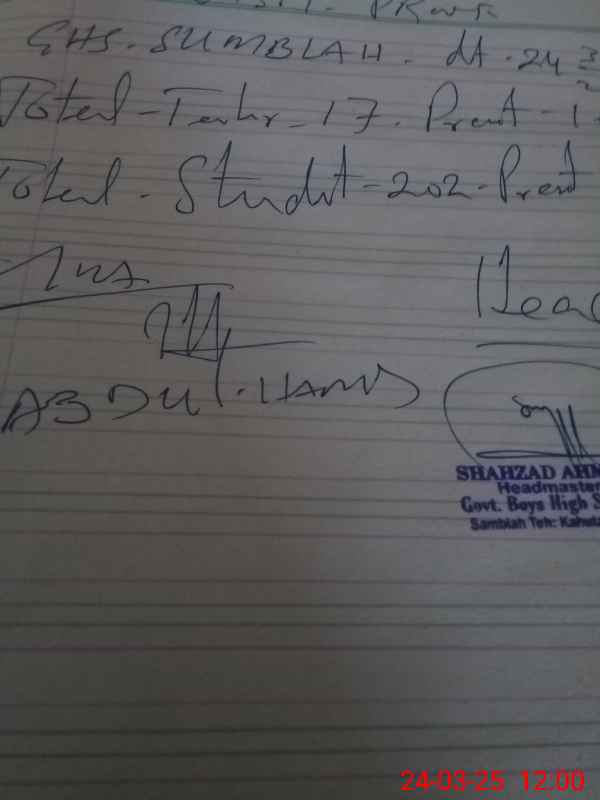 GHS. SUMBLAH. dt. 24
Total - Teachr - 17. Present -
Total - Studt - 202 - Present
ABDUL. HAMID
SHAHZAD AHM
Headmaster
Govt. Boys High S
Samblah Teh: Kahuta
24-03-25 12:00